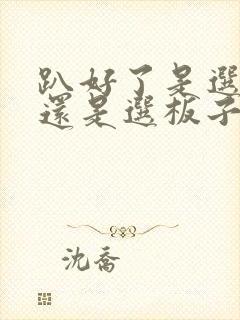 趴好了是選
還是選板子
沈喬